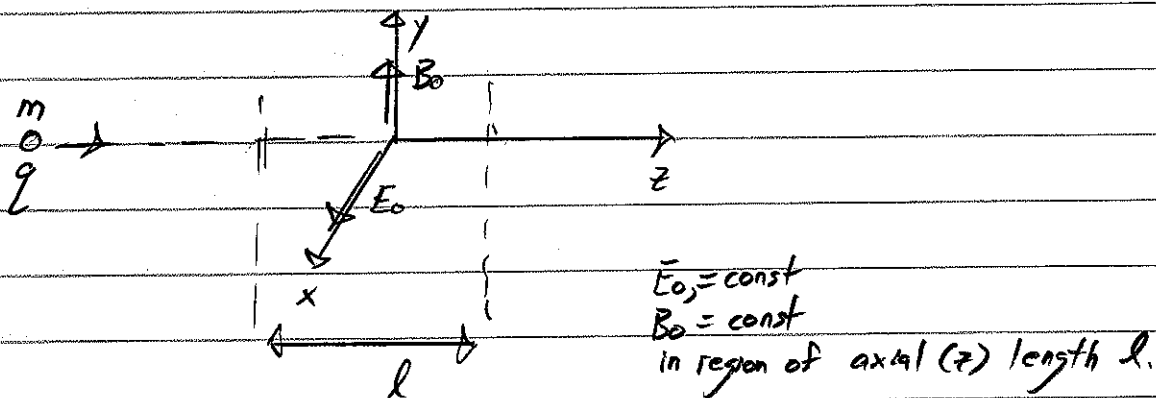 y
B₀
m
q
z
E₀
x
Ē₀,= const
B₀ = const
in region of axial (z) length l.
l